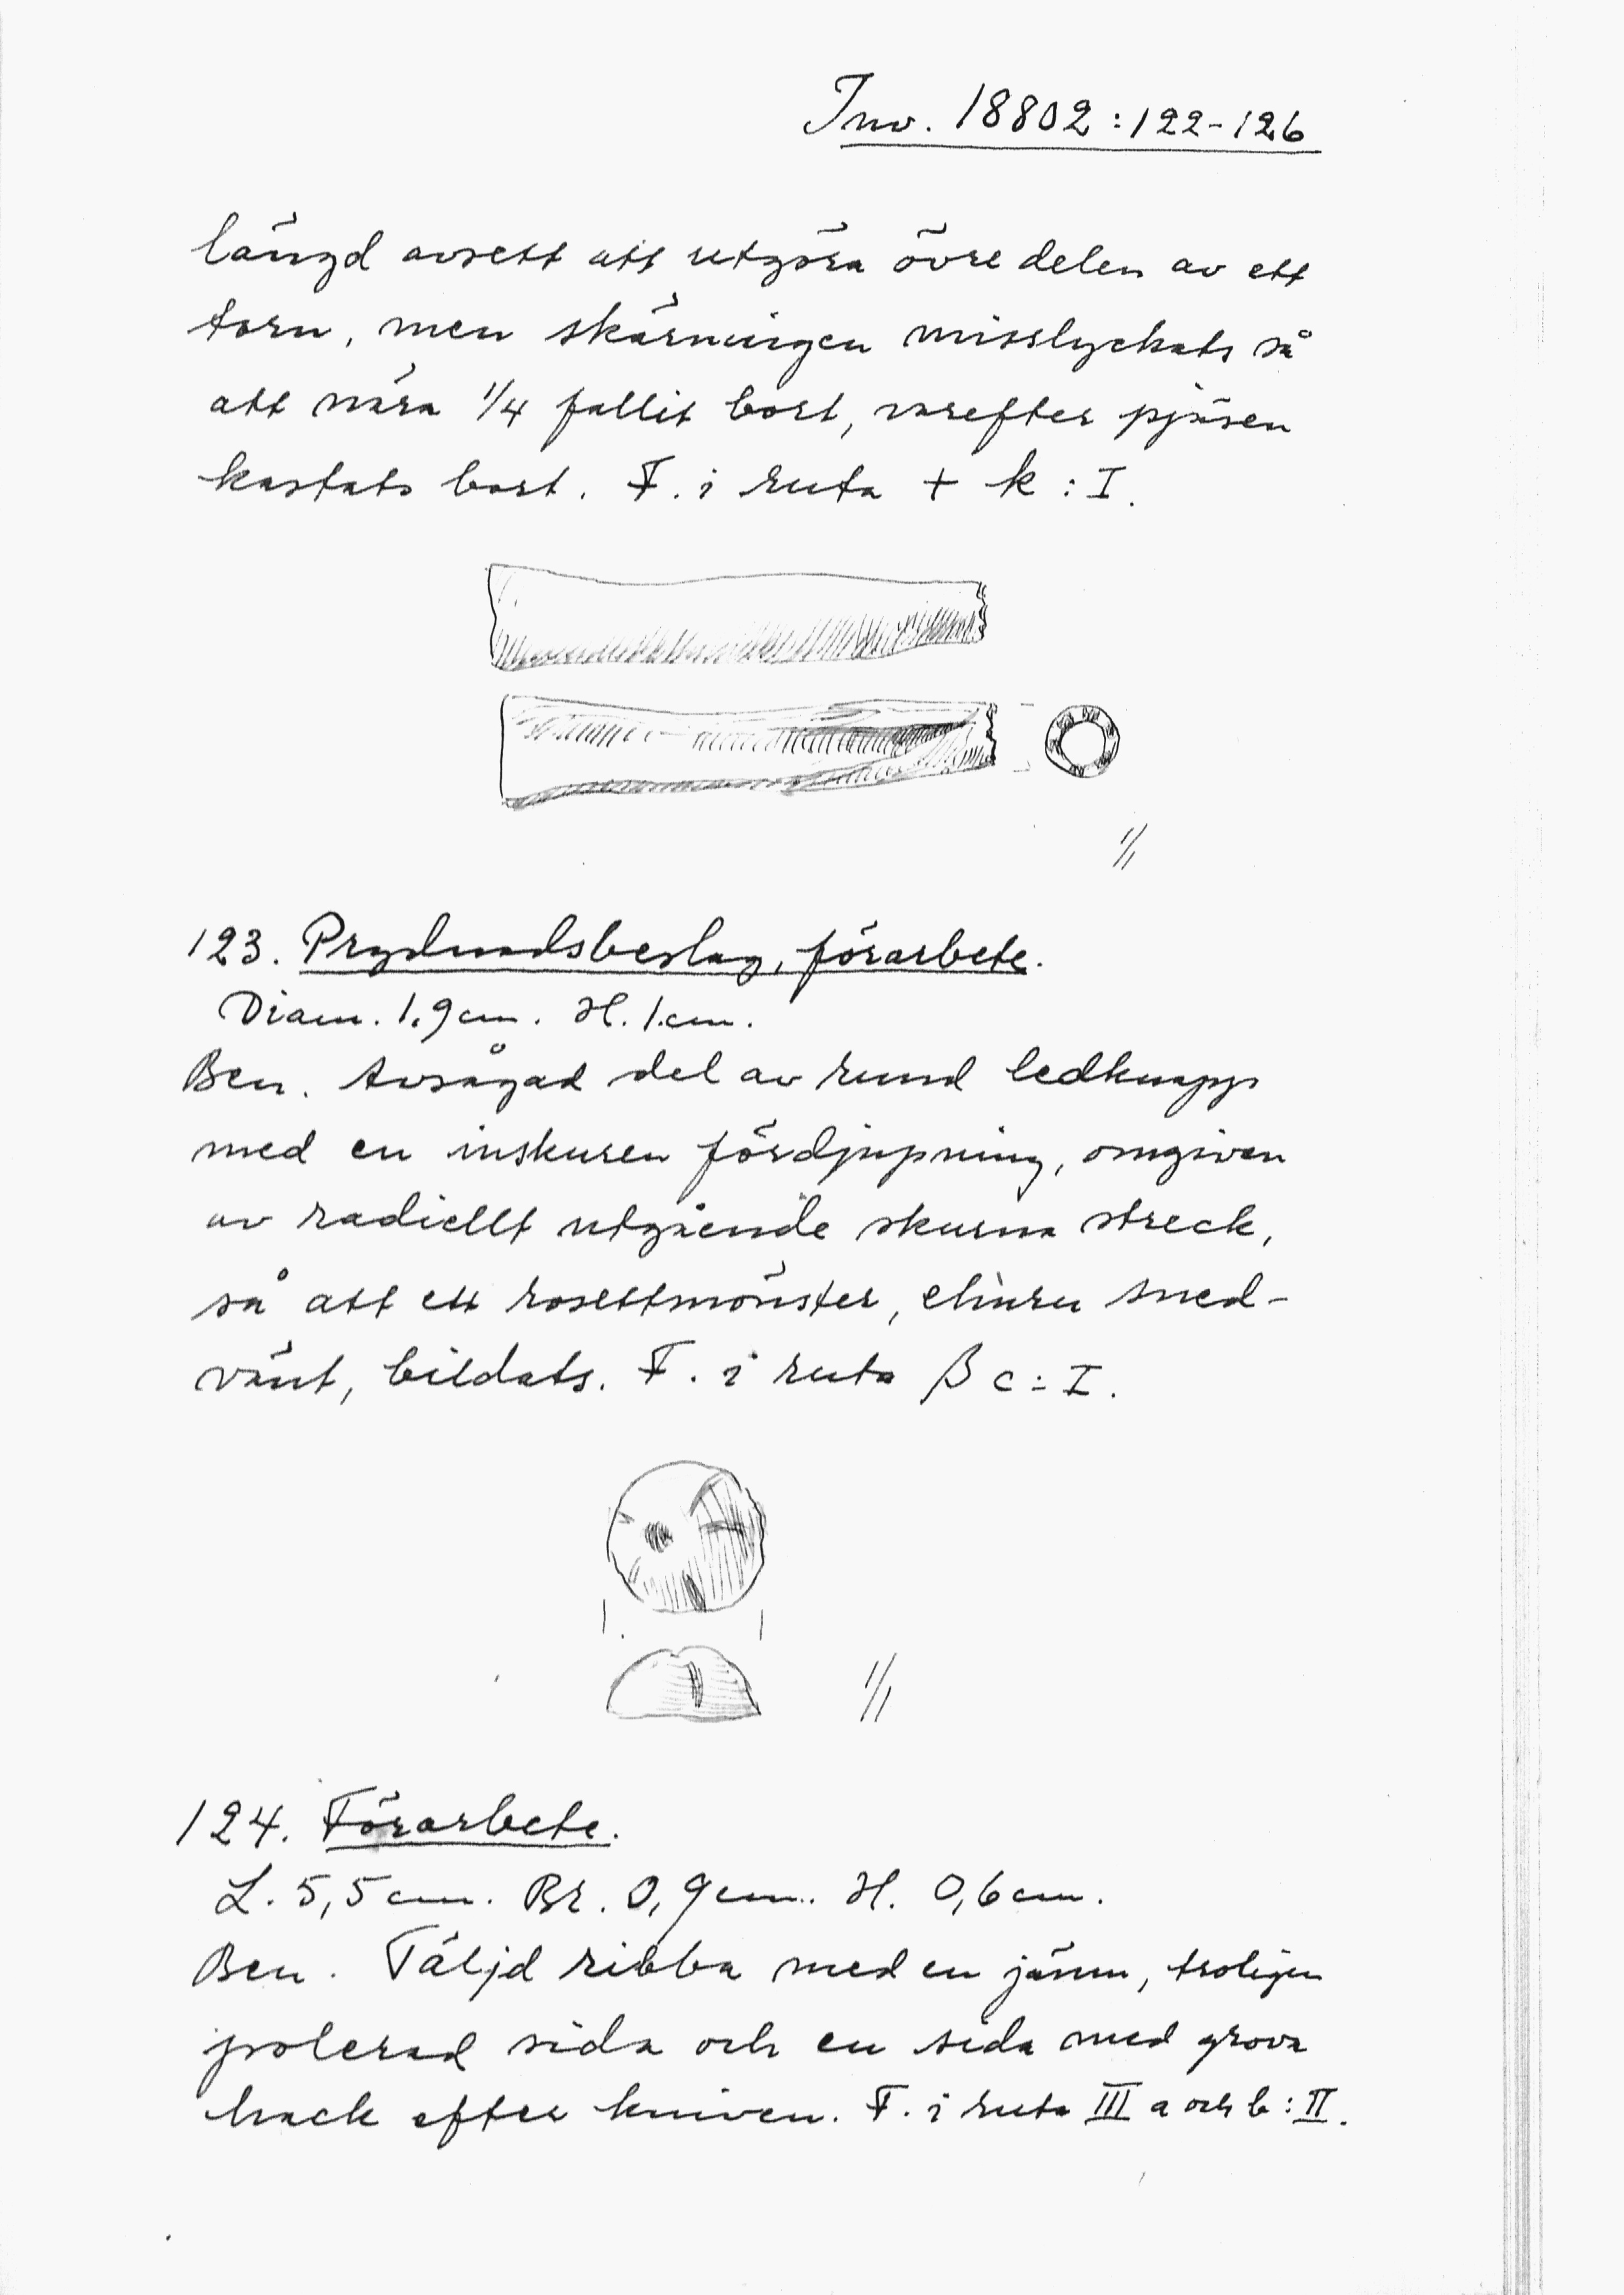 Inv. 18802:122-126
längd avsett att utgöra övre delen av ett
torn, men skärningen misslyckats så
att nära 1/4 fallit bort, varefter pjäsen
kastats bort. F. i ruta + k : I.
1/1
123. Prydnadsbeslag, förarbete.
Diam. 1,9 cm. H. 1. cm.
Ben. Avsågad del av rund ledknapp
med en inskuren fördjupning, omgiven
av radiellt utgående skurna streck,
så att ett rosettmönster, ehuru sned-
vänt, bildats. F. i ruta β c : I.
1/1
124. Förarbete.
L. 5,5 cm. Br. 0,9 cm. H. 0,6 cm.
Ben. Täljd ribba med en jämn, troligen
polerad sida och en sida med grova
hack efter kniven. F. i ruta III a och b : II.